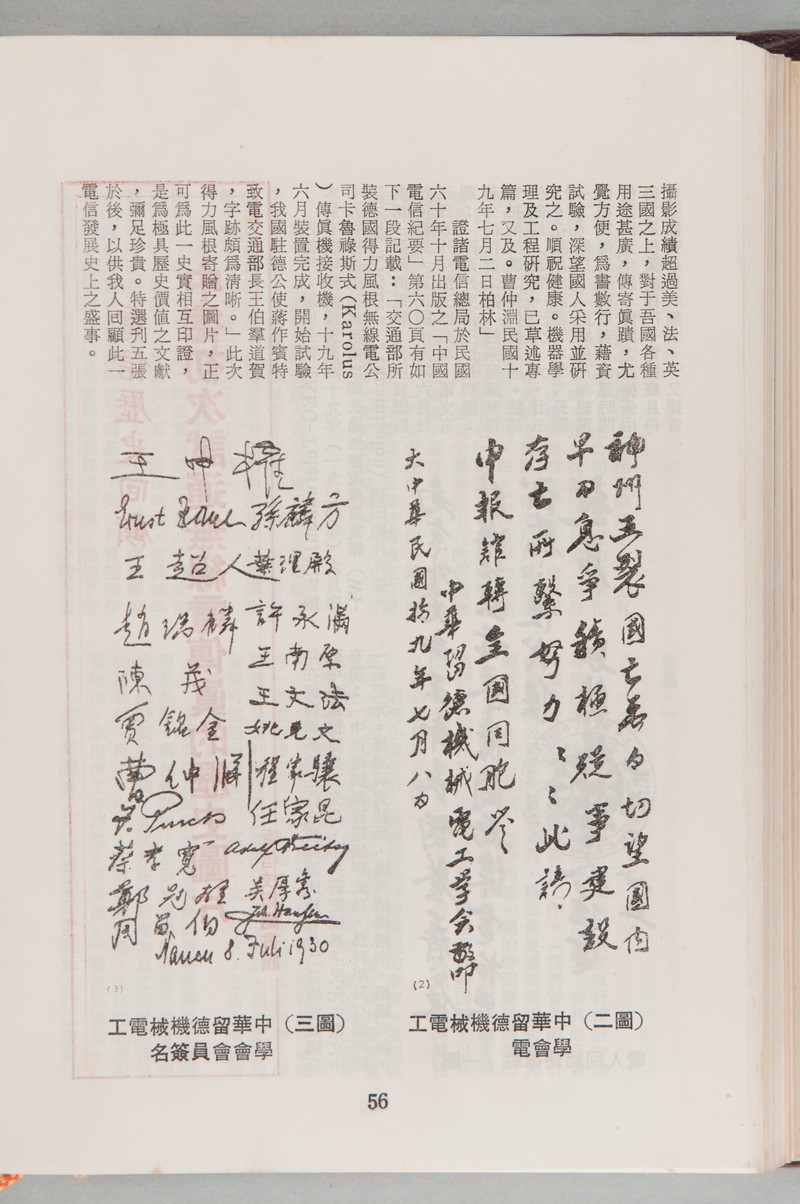 攝影成績超過美、法、英
三國之上，對于吾國各種
用途甚廣，傳寄眞蹟，尤
覺方便，爲書數行，藉資
試驗，深望國人采用並硏
究之。順祝健康。機器學
理及工程硏究，已草述專
篇，又及。曹仲淵民國十
九年七月二日柏林」
證諸電信總局於民國
六十年十月出版之「中國
電信紀要」第六〇頁有如
下一段記載：「交通部所
裝德國得力風根無線電公
司卡魯祿斯式（Karolus
）傳眞機接收機，十九年
六月裝置完成，開始試驗
，我國駐德公使蔣作賓特
致電交通部長王伯羣道賀
，字跡頗爲清晰。」此次
得力風根寄贈之圖片，正
可爲此一史實相互印證，
是爲極具歷史價值之文獻
，彌足珍貴。特選刊五張
於後，以供我人回顧此一
電信發展史上之盛事。
神州五裂國亡無日切望國內
早日息爭積極從事建設
存亡所繫努力〻〻此請
申報館轉全國同胞鑒
中華留德機械電工學會叩
大中華民國拾九年七月八日
(2)
（圖二）中華留德機械電工
學會電
王中權
孫麟方
王超人
葉理殿
趙瑞麟
許永滿
王南原
陳茂
王文法
賈銘金
曹仲淵
程家驤
任家昆
蔡李寬
吳厚
鄭
周
Nauen 8. Juli 1930
(3)
（圖三）中華留德機械電工
學會會員簽名
56